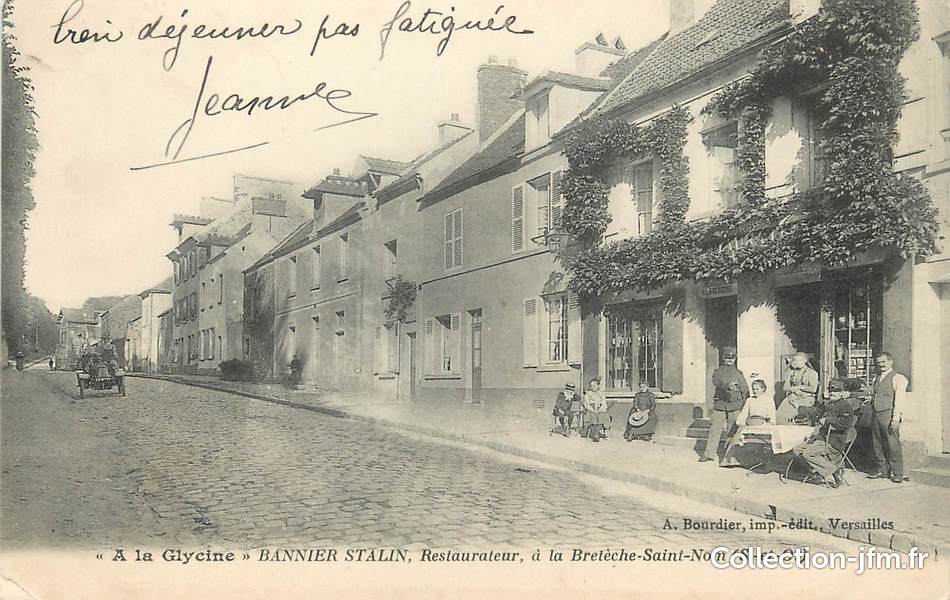 bien déjeuner pas fatiguée
Jeanne
A. Bourdier, imp.-édit., Versailles
« A la Glycine » BANNIER STALIN, Restaurateur, à la Bretèche-Saint-Nom
Collection-jfm.fr